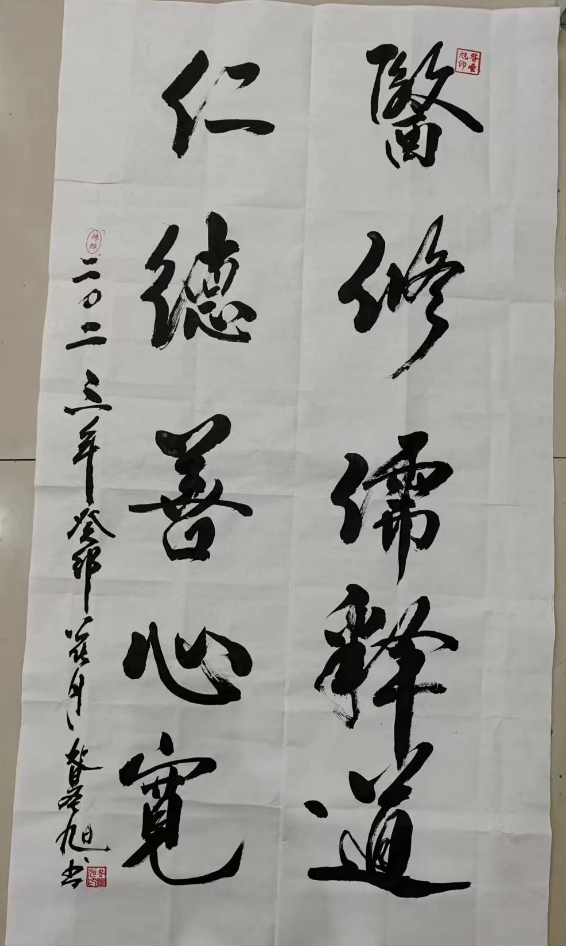 醫修儒释道
仁德善心寬
二〇二三年癸卯花月 旭书